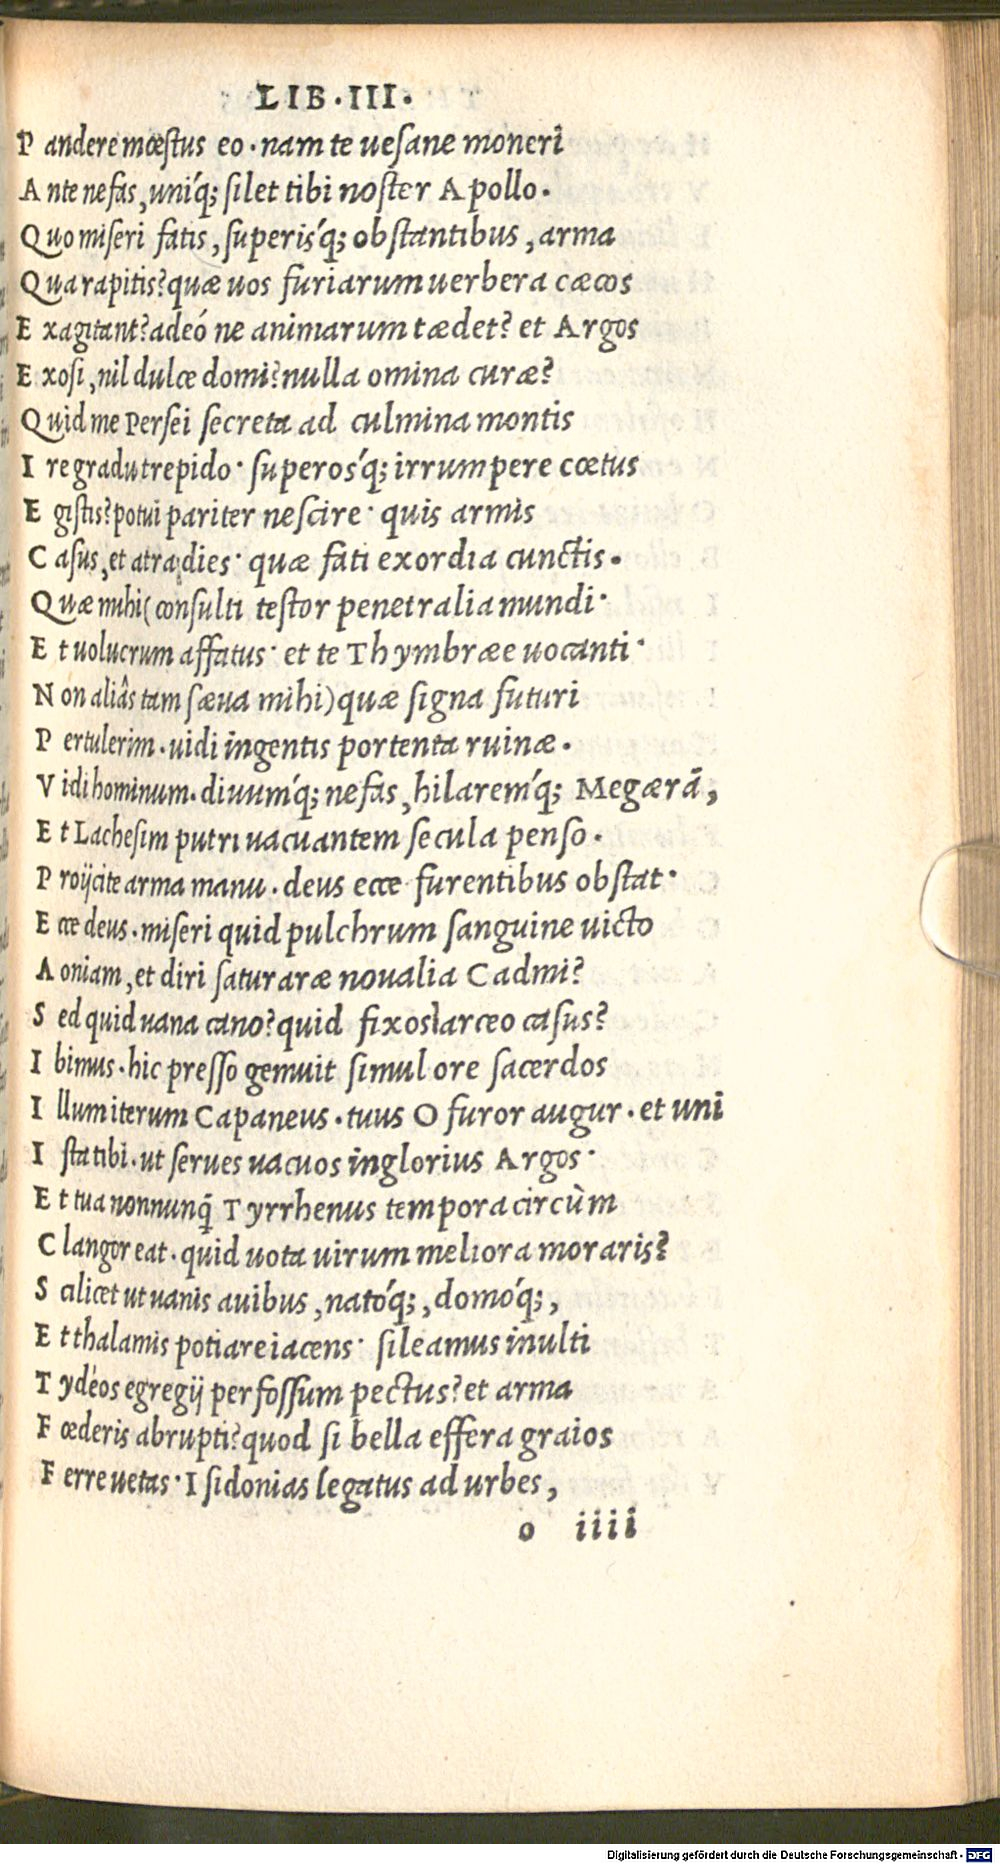 LIB·III.
P andere mœstus eo·nam te uesane moneri
A nte nefas, uniq́; silet tibi noster Apollo.
Q uo miseri fatis, superisq́; obstantibus, arma
Q ua rapitis? quæ uos furiarum uerbera cæcos
E xagitant? adeó ne animarum tædet? et Argos
E xosi, nil dulce domi? nulla omina curæ?
Q uid me Persei secreta ad culmina montis
I re gradu trepido· superosq́; irrumpere cœtus
E gistis? potui pariter nescire· quis armis
C asus, et atra dies· quæ fati exordia cunctis.
Q uæ mihi (consulti testor penetralia mundi·
E t uolucrum affatus· et te Thymbræe uocanti·
N on aliâs tam sæua mihi) quæ signa futuri
P ertulerim·uidi ingentis portenta ruinæ.
V idi hominum·diuumq́; nefas, hilaremq́; Megærā,
E t Lachesim putri uacuantem secula penso.
P roijcite arma manu·deus ecce furentibus obstat·
E cce deus·miseri quid pulchrum sanguine uicto
A oniam, et diri saturare noualia Cadmi?
S ed quid uana cano? quid fixos arceo casus?
I bimus·hic presso gemuit simul ore sacerdos
I llum iterum Capaneus·tuus O furor augur·et uni
I sta tibi·ut serues uacuos inglorius Argos·
E t tua nonnunq̄ Tyrrhenus tempora circùm
C langor eat·quid uota uirum meliora moraris?
S cilicet ut uanis auibus, natoq́;, domoq́;,
E t thalamis potiare iacens· sileamus inulti
T ydeos egregij perfossum pectus? et arma
F œderis abrupti? quod si bella effera graios
F erre uetas· I sidonias legatus ad urbes,
o iiii
Digitalisierung gefördert durch die Deutsche Forschungsgemeinschaft - DFG